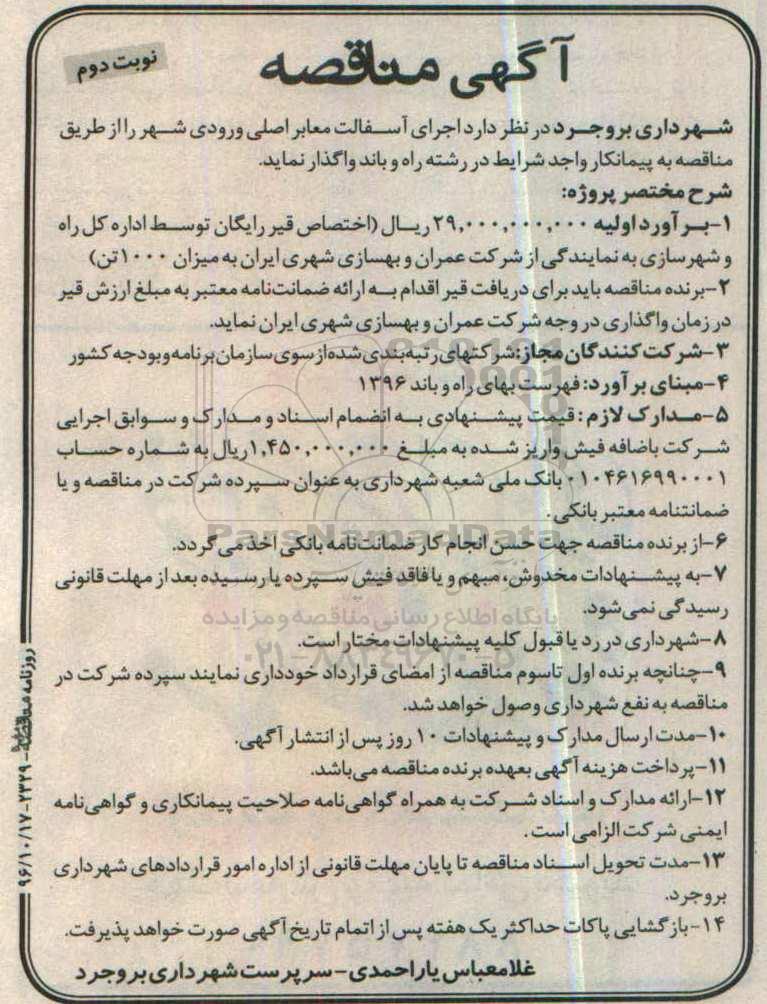 آگهی مناقصه
نوبت دوم
شهرداری بروجرد در نظر دارد اجرای آسفالت معابر اصلی ورودی شهر را از طریق
مناقصه به پیمانکار واجد شرایط در رشته راه و باند واگذار نماید.
شرح مختصر پروژه:
۱-برآورد اولیه ۲۹,۰۰۰,۰۰۰,۰۰۰ ریال (اختصاص قیر رایگان توسط اداره کل راه
و شهرسازی به نمایندگی از شرکت عمران و بهسازی شهری ایران به میزان ۱۰۰۰ تن)
۲-برنده مناقصه باید برای دریافت قیر اقدام به ارائه ضمانت‌نامه معتبر به مبلغ ارزش قیر
در زمان واگذاری در وجه شرکت عمران و بهسازی شهری ایران نماید.
۳-شرکت‌کنندگان مجاز: شرکتهای رتبه‌بندی شده از سوی سازمان برنامه و بودجه کشور
۴-مبنای برآورد: فهرست بهای راه و باند ۱۳۹۶
۵-مدارک لازم: قیمت پیشنهادی به انضمام اسناد و مدارک و سوابق اجرایی
شرکت باضافه فیش واریز شده به مبلغ ۱,۴۵۰,۰۰۰,۰۰۰ ریال به شماره حساب
۰۱۰۴۶۱۶۹۹۰۰۰۱ بانک ملی شعبه شهرداری به عنوان سپرده شرکت در مناقصه و یا
ضمانتنامه معتبر بانکی.
۶-از برنده مناقصه جهت حسن انجام کار ضمانت‌نامه بانکی اخذ می‌گردد.
۷-به پیشنهادات مخدوش، مبهم و یا فاقد فیش سپرده یا رسیده بعد از مهلت قانونی
رسیدگی نمی‌شود.
۸-شهرداری در رد یا قبول کلیه پیشنهادات مختار است.
۹-چنانچه برنده اول تا سوم مناقصه از امضای قرارداد خودداری نمایند سپرده شرکت در
مناقصه به نفع شهرداری وصول خواهد شد.
۱۰-مدت ارسال مدارک و پیشنهادات ۱۰ روز پس از انتشار آگهی.
۱۱-پرداخت هزینه آگهی بعهده برنده مناقصه می‌باشد.
۱۲-ارائه مدارک و اسناد شرکت به همراه گواهی‌نامه صلاحیت پیمانکاری و گواهی‌نامه
ایمنی شرکت الزامی است.
۱۳-مدت تحویل اسناد مناقصه تا پایان مهلت قانونی از اداره امور قراردادهای شهرداری
بروجرد.
۱۴-بازگشایی پاکات حداکثر یک هفته پس از اتمام تاریخ آگهی صورت خواهد پذیرفت.
غلامعباس یاراحمدی-سرپرست شهرداری بروجرد
روزنامه مناقصه-۲۳۲۹-۹۶/۱۰/۱۷
ParsNamadData
پایگاه اطلاع رسانی مناقصه و مزایده